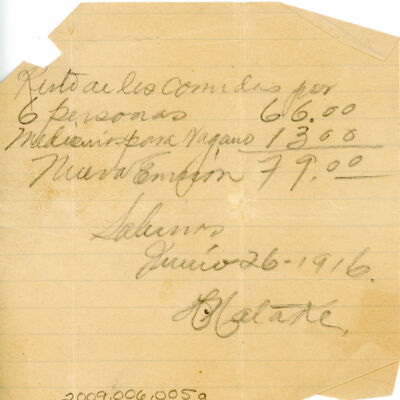 Resto de las comidas por
6 personas 66.00
Medecinas para Nagano 13 00
Nueva Emición 79.00
Sabinas
Junio 26-1916.
Hatake.
2009.006.005a